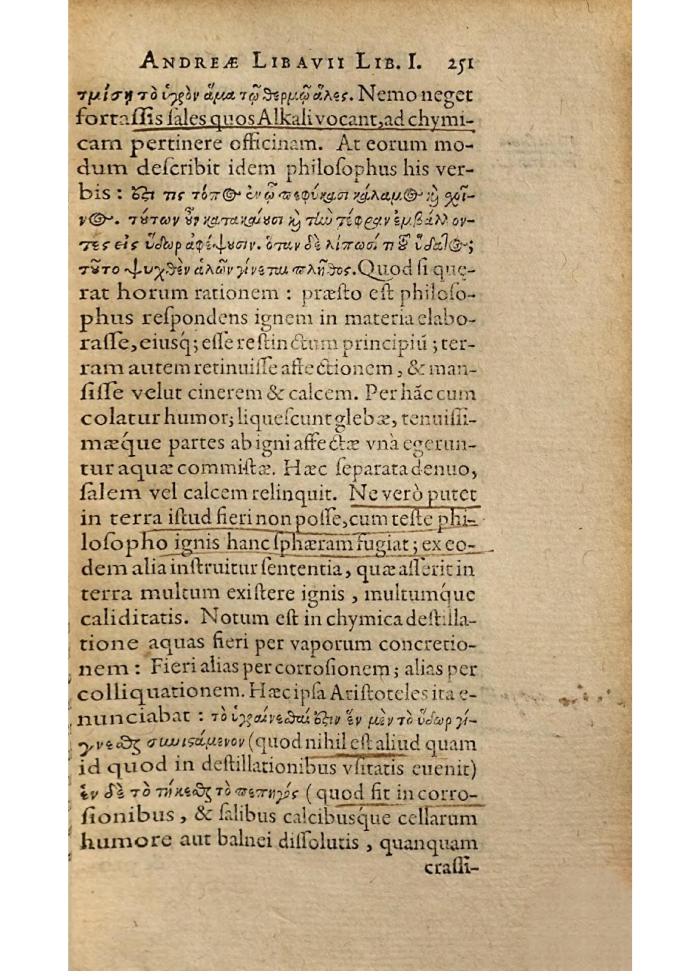 ANDREÆ LIBAVII LIB. I. 251
τμίσῃ τὸ ὑγρὸν ἅμα τῷ θερμῷ ἅλες. Nemo neget
fortaſsis ſales quos Alkali vocant, ad chymi-
cam pertinere officinam. At eorum mo-
dum deſcribit idem philoſophus his ver-
bis : ἔςι τις τόπος ἐν ᾧ πεφύκασι κάλαμος καὶ χοῖ-
νος. τύτων ὖν κατακαύσι καὶ τὴν τέφραν ἐμβάλλον-
τες εἰς ὕδωρ ἀφέψυσιν. ὅταν δὲ λίπωσί τι τῦ ὕδατος;
τῦτο ψυχθὲν ἁλῶν γίνεται πλῆθος. Quod ſi quę-
rat horum rationem : præſto eſt philoſo-
phus reſpondens ignem in materia elabo-
raſſe, eiusq́; eſſe reſtinctum principiũ ; ter-
ram autem retinuiſſe affectionem, & man-
ſiſſe velut cinerem & calcem. Per hãc cum
colatur humor; liqueſcunt glebæ, tenuiſsi-
mæque partes ab igni affectæ vnà egerun-
tur aquæ commiſtæ. Hæc ſeparata denuo,
ſalem vel calcem relinquit. Ne verò putet
in terra iſtud fieri non poſſe, cum teſte phi-
loſopho ignis hanc ſphæram fugiat ; ex eo-
dem alia inſtruitur ſententia, quæ aſſerit in
terra multum exiſtere ignis , multumq́ue
caliditatis. Notum eſt in chymica deſtilla-
tione aquas fieri per vaporum concretio-
nem : Fieri alias per corroſionem ; alias per
colliquationem. Hæc ipſa Ariſtoteles ita e-
nunciabat : τὸ ὑγραίνεσθαί ἐςιν ἓν μὲν τὸ ὕδωρ γί-
γνεσθαι συνισάμενον (quod nihil eſt aliud quam
id quod in deſtillationibus vſitatis euenit)
ἓν δὲ τὸ τήκεσθαι τὸ πεπηγός ( quod fit in corro-
ſionibus , & ſalibus calcibusque cellarum
humore aut balnei diſſolutis , quanquam
craſsi-